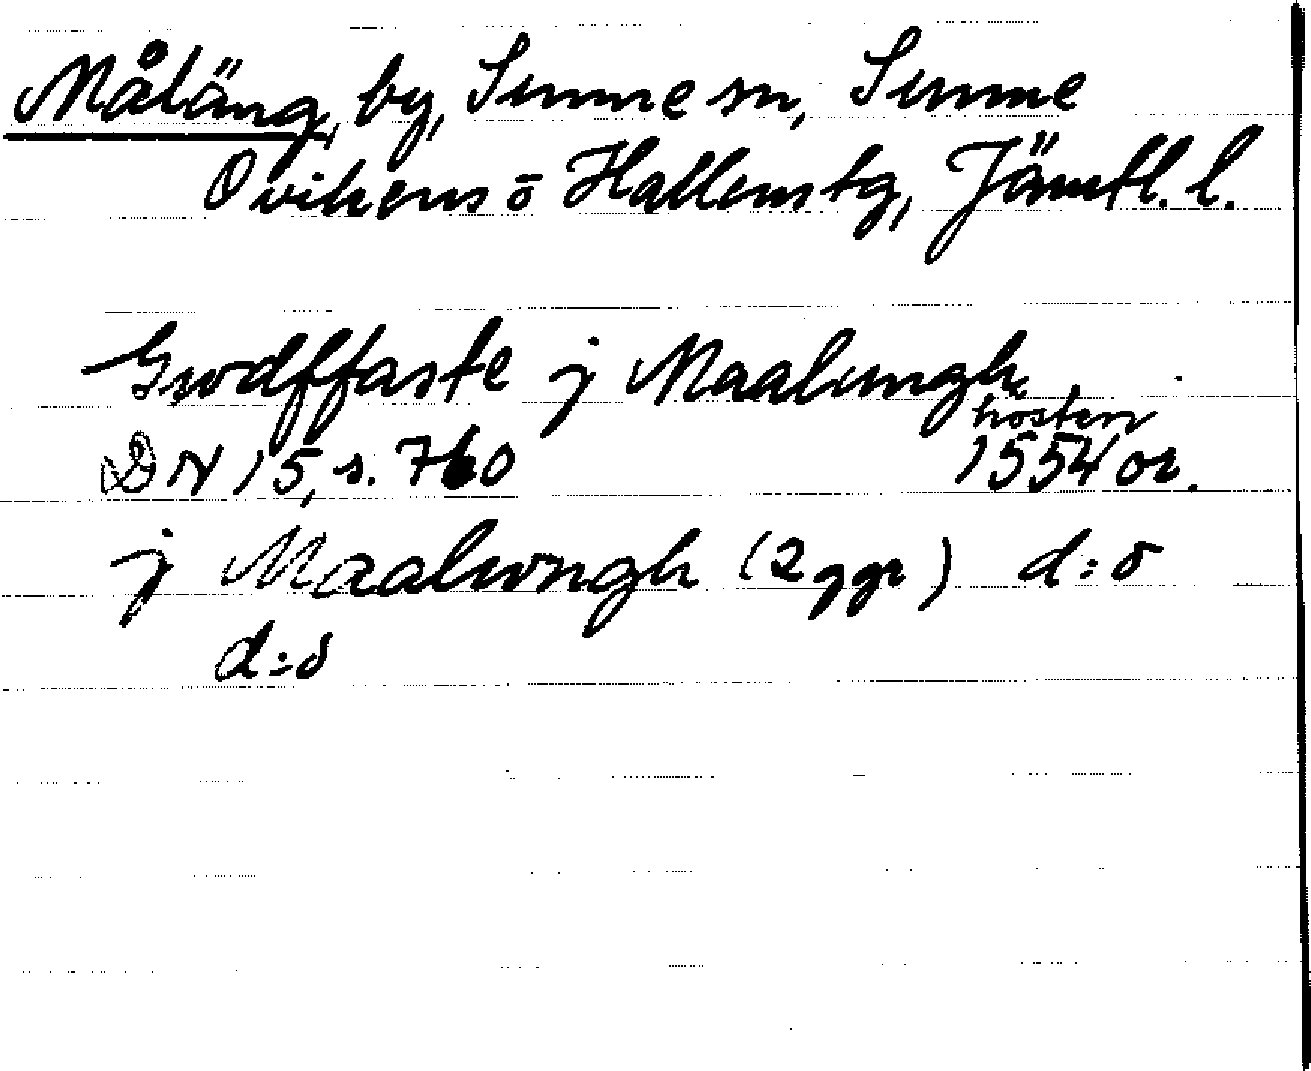 Måläng, by, Sunne sn, Sunne
Ovikens o Hallens tg, Jämtl. l.
Gwdffaste j Maalungh
hösten
DN 15, s. 760 1554 or.
j Maalwngh (2 ggr) d:o
d:o